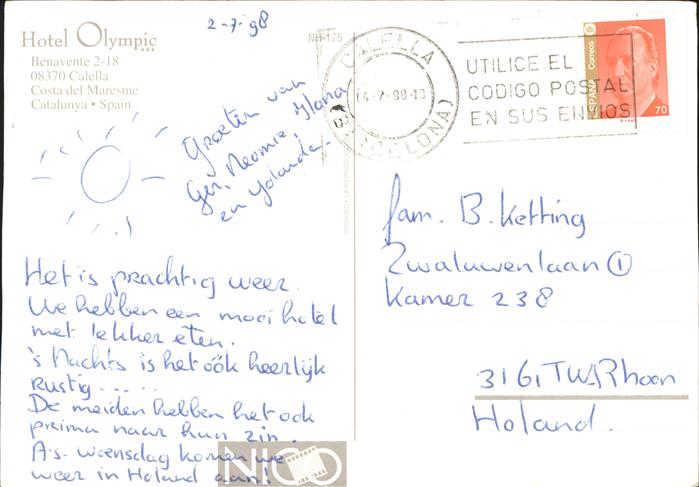 2-7-98
Hotel Olympic
Benavente 2-18
08370 Calella
Costa del Maresme
Catalunya • Spain
NH-175
Groeten van
Ger, Neomie, Ilona
en Yolanda.
Het is prachtig weer.
We hebben een mooi hotel
met lekker eten.
's Nachts is het óók heerlijk
rustig.....
De meiden hebben het ook
prima naar hun zin.
A.s. woensdag komen we
weer in Holand aan.
NICO
CALELLA
-7-98-13
(BARCELONA)
UTILICE EL
CODIGO POSTAL
EN SUS ENVIOS
ESPAÑA Correos
70
fam. B. Ketting
Zwaluwenlaan 1
Kamer 238
3161TW Rhoon
Holand.